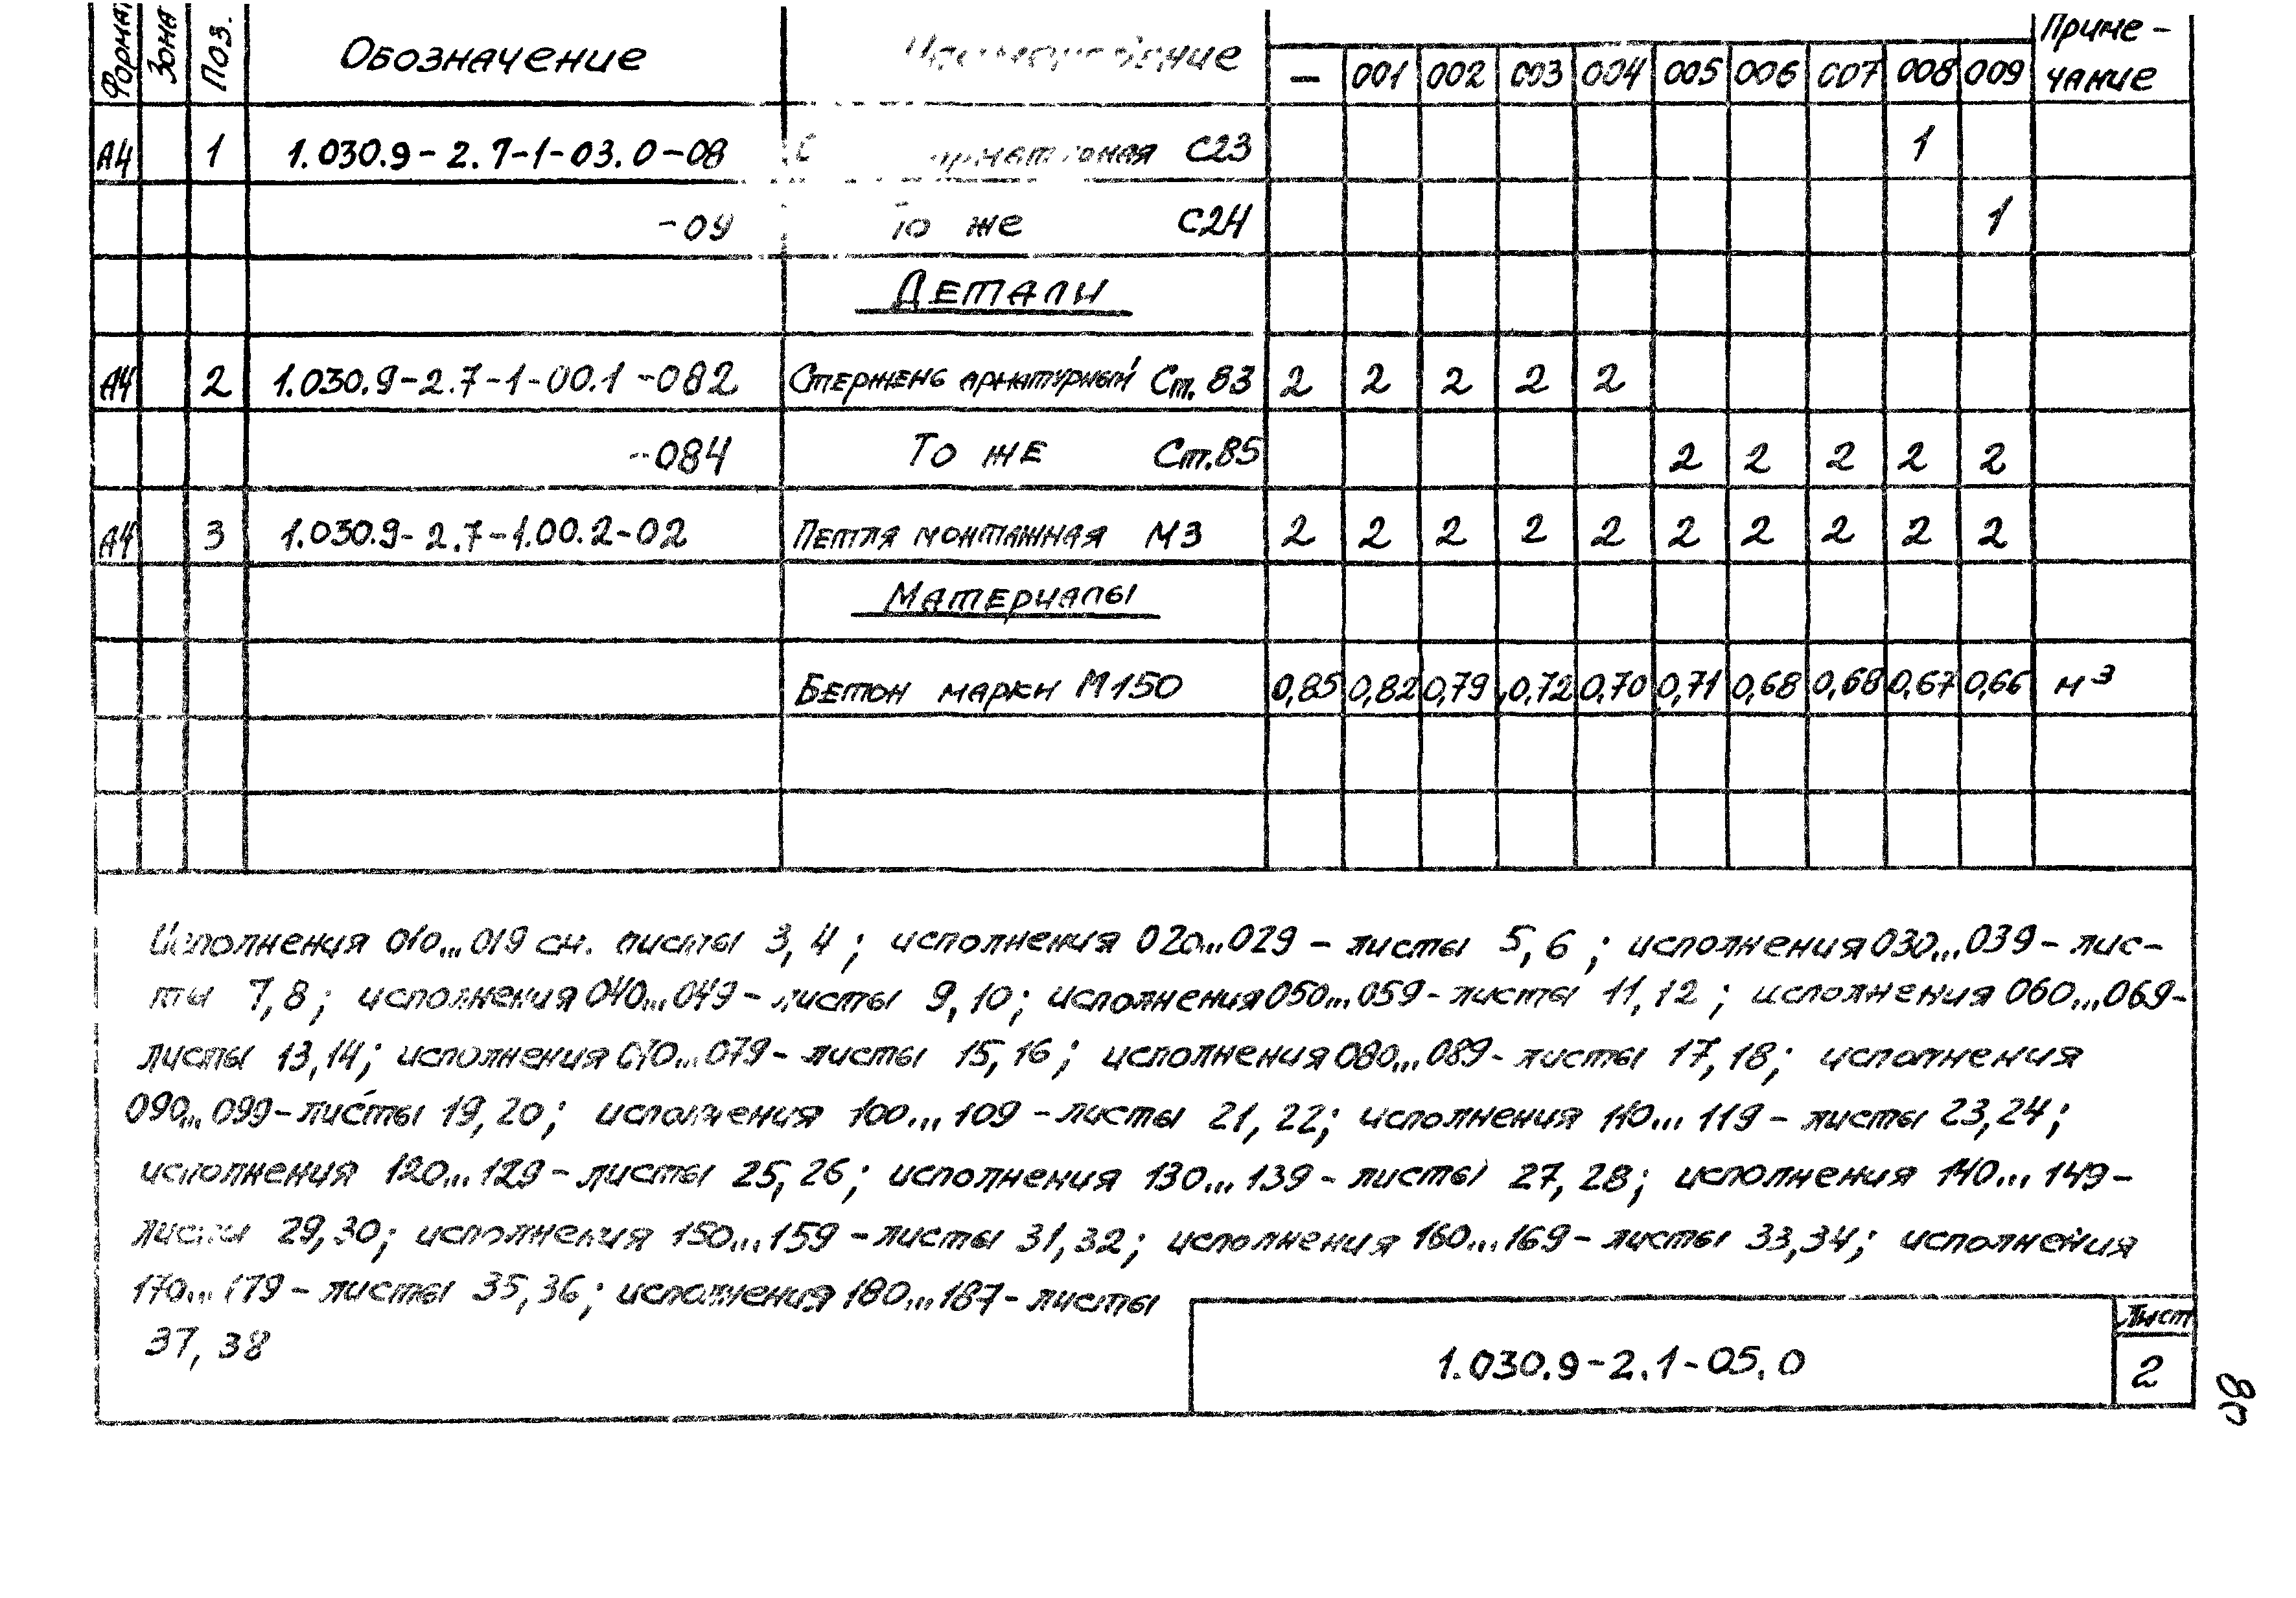 Формат Зона Поз. Обозначение — 001 002 003 004 005 006 007 008 009 Приме-
чание
А4 1 1.030.9-2.7-1-03.0-08 С23 1
-09 То же С24 1
Детали
А4 2 1.030.9-2.7-1-00.1-082 Стержень арматурный Ст.83 2 2 2 2 2
-084 То же Ст.85 2 2 2 2 2
А4 3 1.030.9-2.7-1.00.2-02 Петля монтажная М3 2 2 2 2 2 2 2 2 2 2
Материалы
Бетон марки М150 0,85 0,82 0,79 0,72 0,70 0,71 0,68 0,68 0,67 0,66 м³
Исполнения 010...019 см. листы 3, 4; исполнения 020...029 - листы 5, 6; исполнения 030...039 - лис-
ты 7, 8; исполнения 040...049 - листы 9, 10; исполнения 050...059 - листы 11, 12; исполнения 060...069-
листы 13, 14; исполнения 070...079 - листы 15, 16; исполнения 080...089 - листы 17, 18; исполнения
090...099 - листы 19, 20; исполнения 100...109 - листы 21, 22; исполнения 110...119 - листы 23, 24;
исполнения 120...129 - листы 25, 26; исполнения 130...139 - листы 27, 28; исполнения 140...149 -
листы 29, 30; исполнения 150...159 - листы 31, 32; исполнения 160...169 - листы 33, 34; исполнения
170...179 - листы 35, 36; исполнения 180...187 - листы
37, 38
1.030.9-2.1-05.0
Лист
2